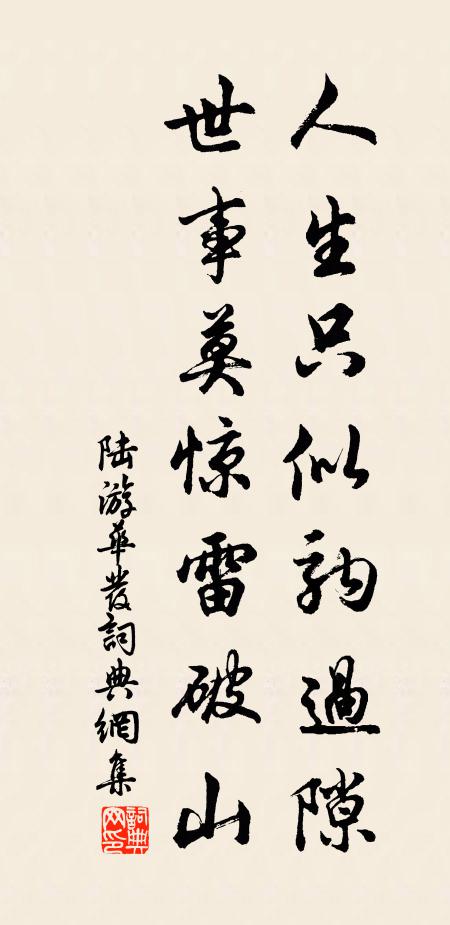 人生只似駒過隙
世事莫惊雷破山
陆游華發詞典網集
詞典网印